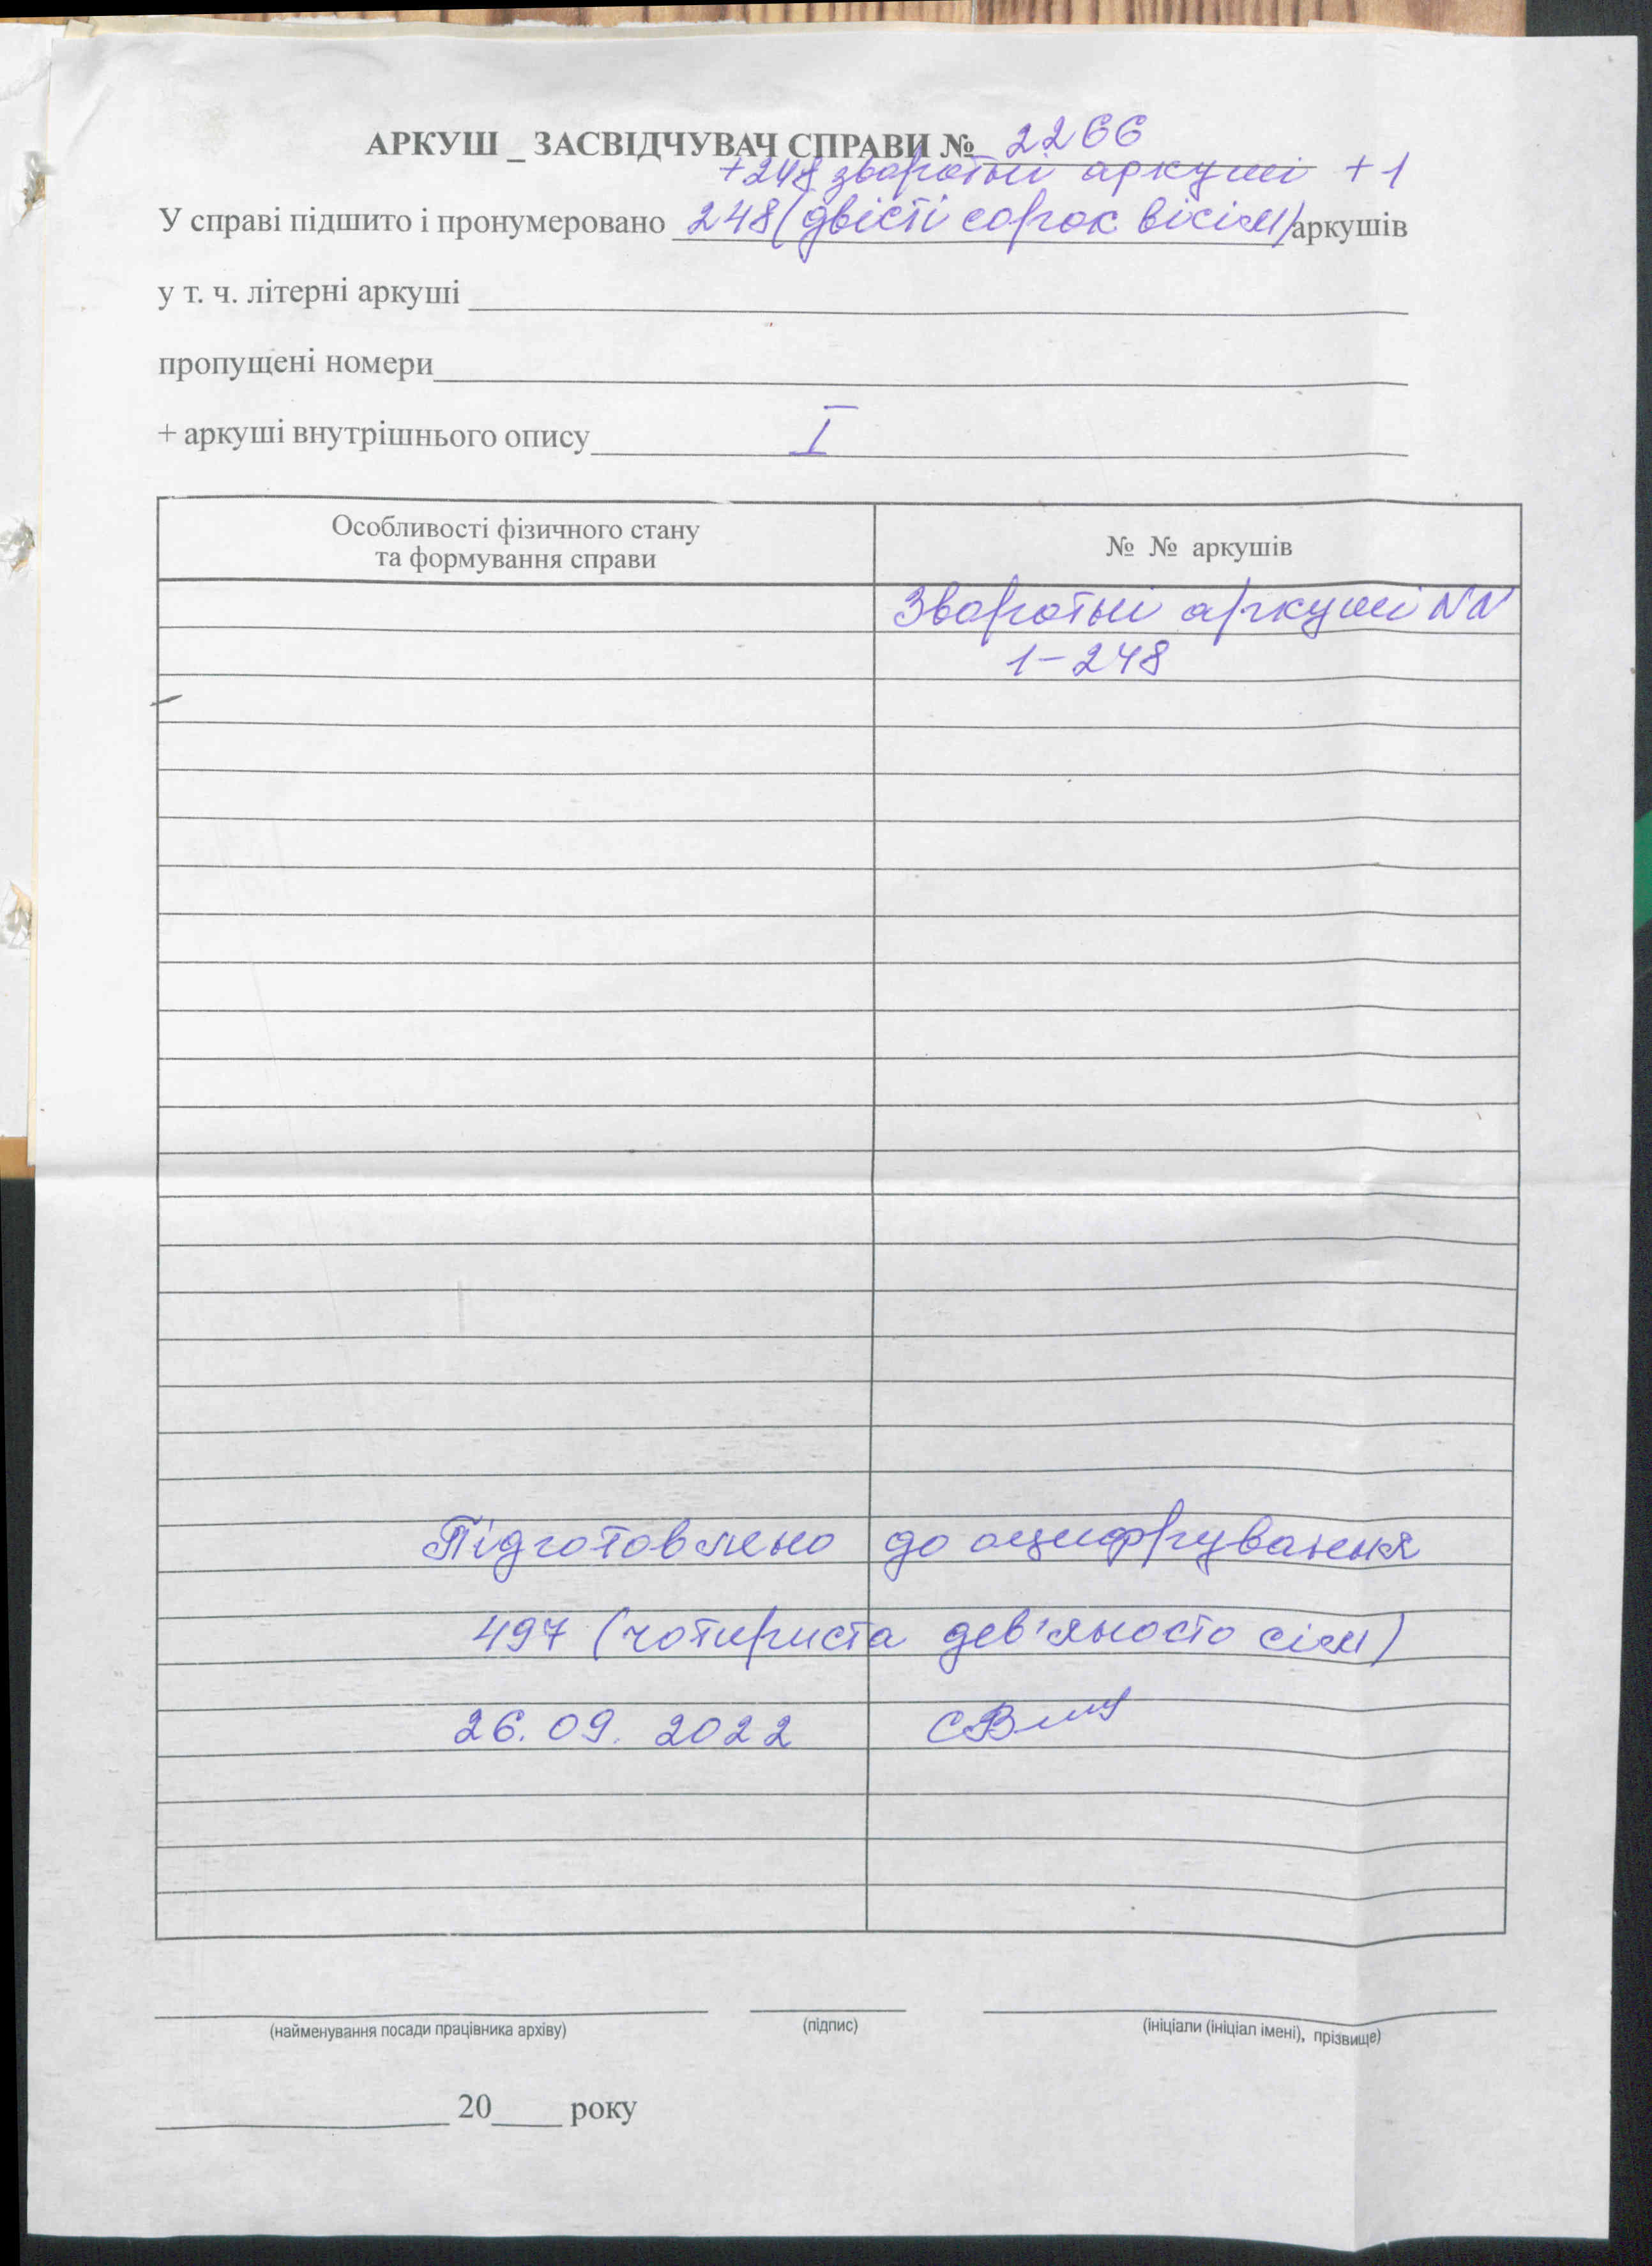 АРКУШ _ ЗАСВІДЧУВАЧ СПРАВИ № 2266
+248 зворотні аркуші +1
У справі підшито і пронумеровано 248 (двісті сорок вісім) аркушів
у т. ч. літерні аркуші
пропущені номери
+ аркуші внутрішнього опису I
Особливості фізичного стану
та формування справи
№ № аркушів
Зворотні аркуші NN
1-248
Підготовлено до оцифрування
497 (чотириста дев'яносто сім)
26.09.2022
(найменування посади працівника архіву) (підпис) (ініціали (ініціал імені), прізвище)
20 року